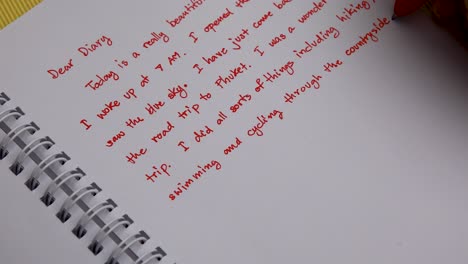 Dear Diary
Today is a really beautiful
I woke up at 7 AM. I opened the
saw the blue sky. I have just come ba
the road trip to Phuket. I was a wonder
trip. I did all sorts of things including hiking,
swimming and cycling through the countryside